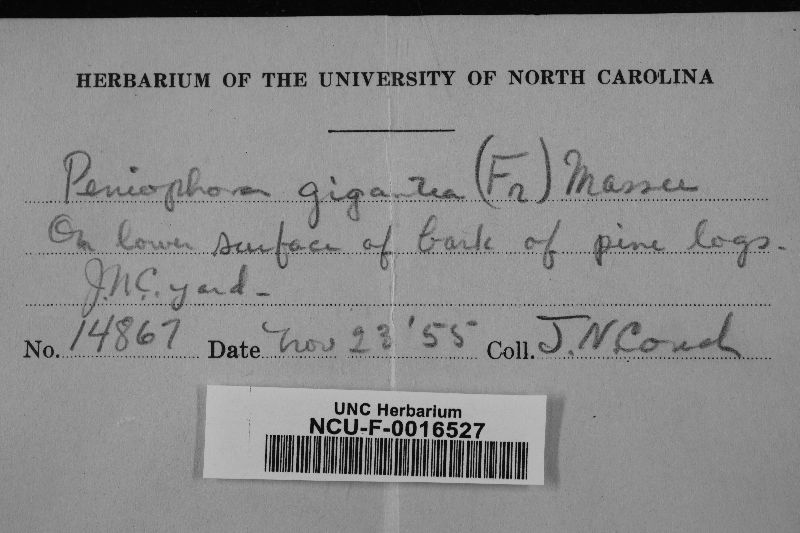 HERBARIUM OF THE UNIVERSITY OF NORTH CAROLINA
Peniophora gigantea (Fr) Massee
On lower surface of bark of pine logs.
J.N.C. yard -
No. 14867 Date Nov 23 '55 Coll. J.N.Couch
UNC Herbarium
NCU-F-0016527